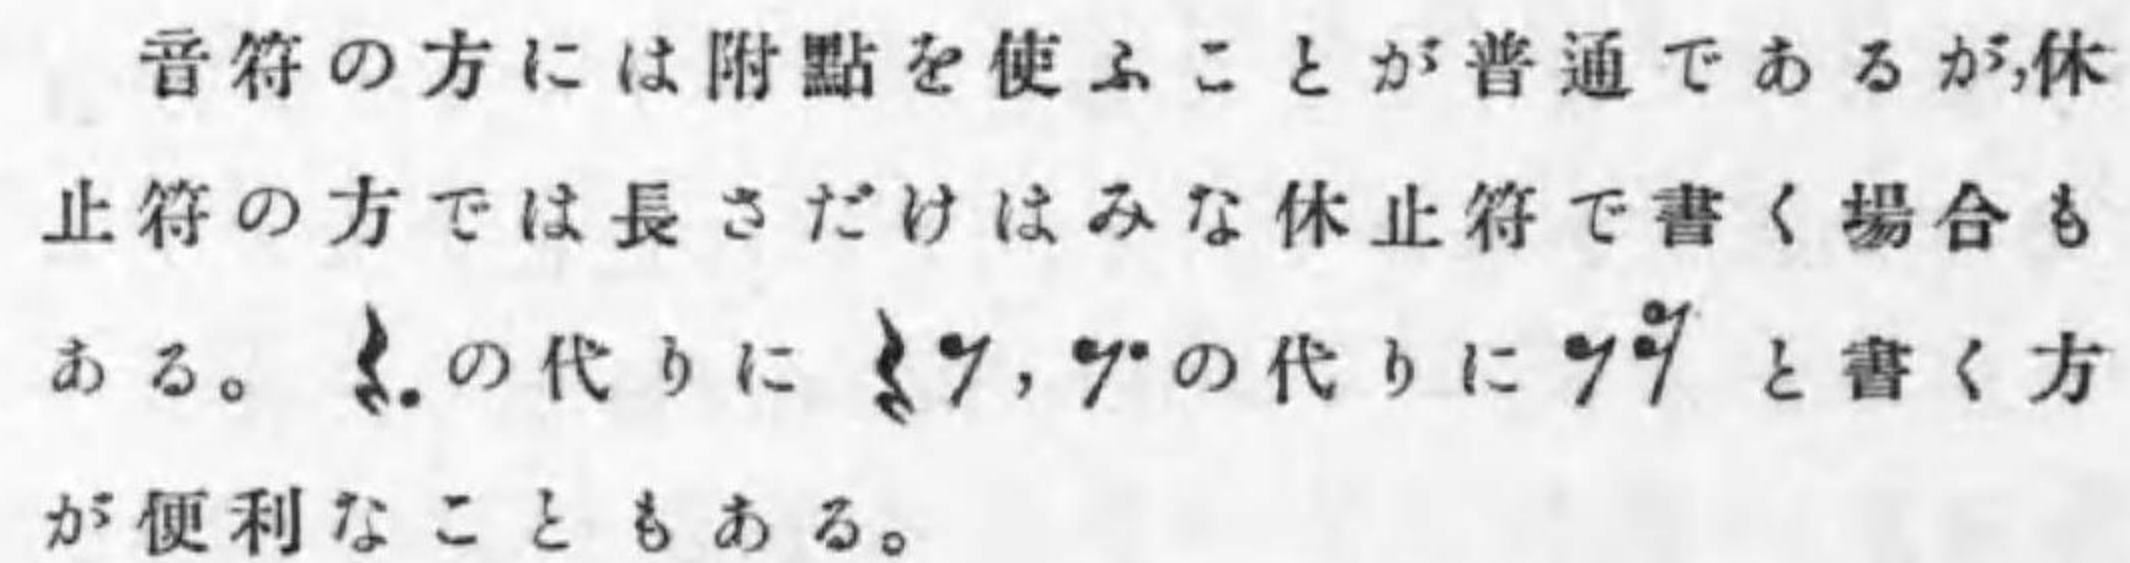 音符の方には附點を使ふことが普通であるが,休
止符の方では長さだけはみな休止符で書く場合も
ある。𝄽.の代りに𝄽𝄾,𝄾·の代りに𝄾𝄿と書く方
が便利なこともある。